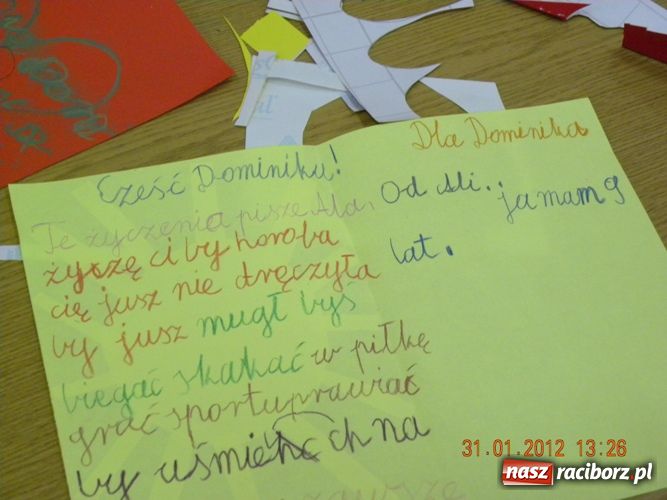 Cześć Dominiku!
Te życzenia pisze Ala.
życzę ci by horoba
cię jusz nie dręczyła
by jusz mugł byś
biegać skakać w piłkę
grać sport uprawiać
by uśmiech na
Dla Dominika
Od Ali. ja mam 9
lat.
31.01.2012 13:26
nasz raciborz.pl